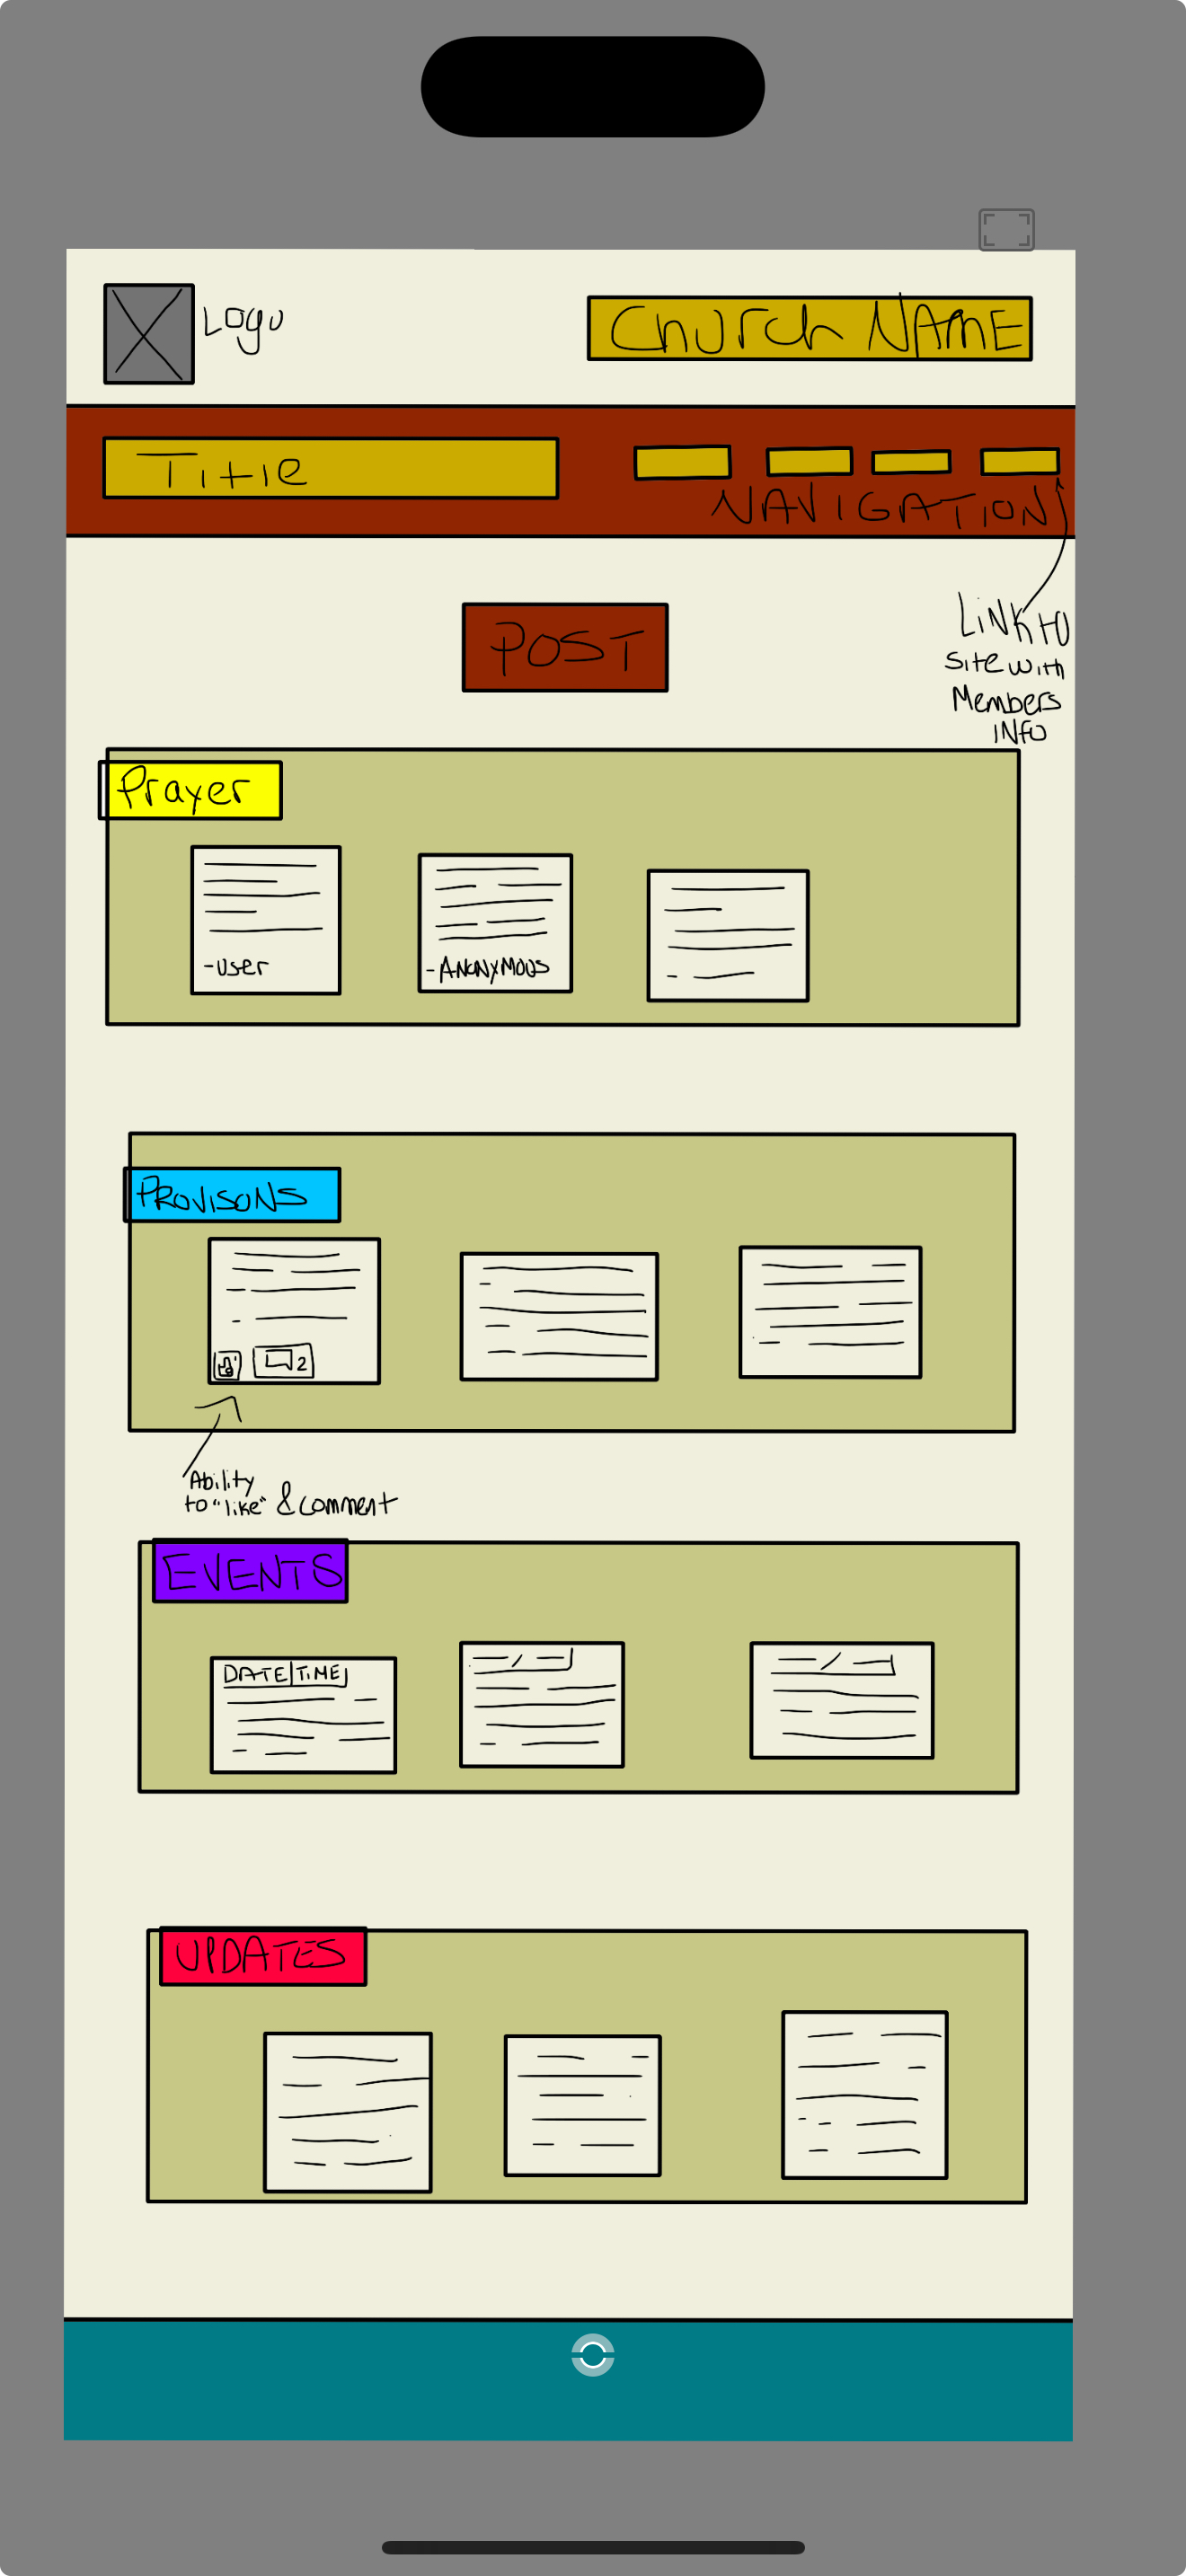 Logo
Church NAME
Title
NAVIGATION
POST
LiNK to
Site with
Members
INfo
Prayer
-User
-ANONYMOUS
PROVISONS
2
Ability
to "like" & comment
EVENTS
DATE|TIME
UPDATES